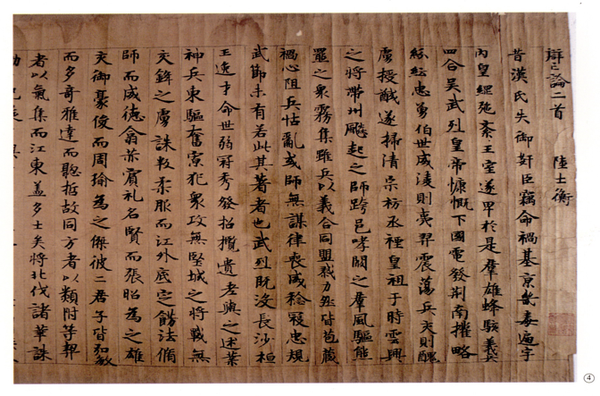 辯亡論二首 陸士衡
昔漢氏失御奸臣竊命禍基京畿毒遍宇
內皇綱弛紊王室遂卑於是群雄蜂駭義兵
四合吳武烈皇帝慷慨下國電發荊南權略
紛紜忠勇伯世威稜則夷羿震蕩兵交則醜
虜授馘遂掃清宗祊烝禋皇祖于時雲興
之將帶州飈起之師跨邑哮闞之群風驅熊
羆之眾霧集雖兵以義合同盟戮力然皆苞藏
禍心阻兵怙亂或師無謀律喪威稔寇忠規
武節未有若此其著者也武烈既沒長沙桓
王逸才命世弱冠秀發招攬遺老與之述業
神兵東驅奮寡犯眾攻無堅城之將戰無
交鋒之虜誅叛柔服而江外底定飭法脩
師而威德翕赫賓礼名賢而張昭為之雄
交御豪俊而周瑜為之傑彼二君子皆弘敏
而多奇雅達而聰哲故同方者以類附等契
者以氣集而江東蓋多士矣將北伐諸華誅
④